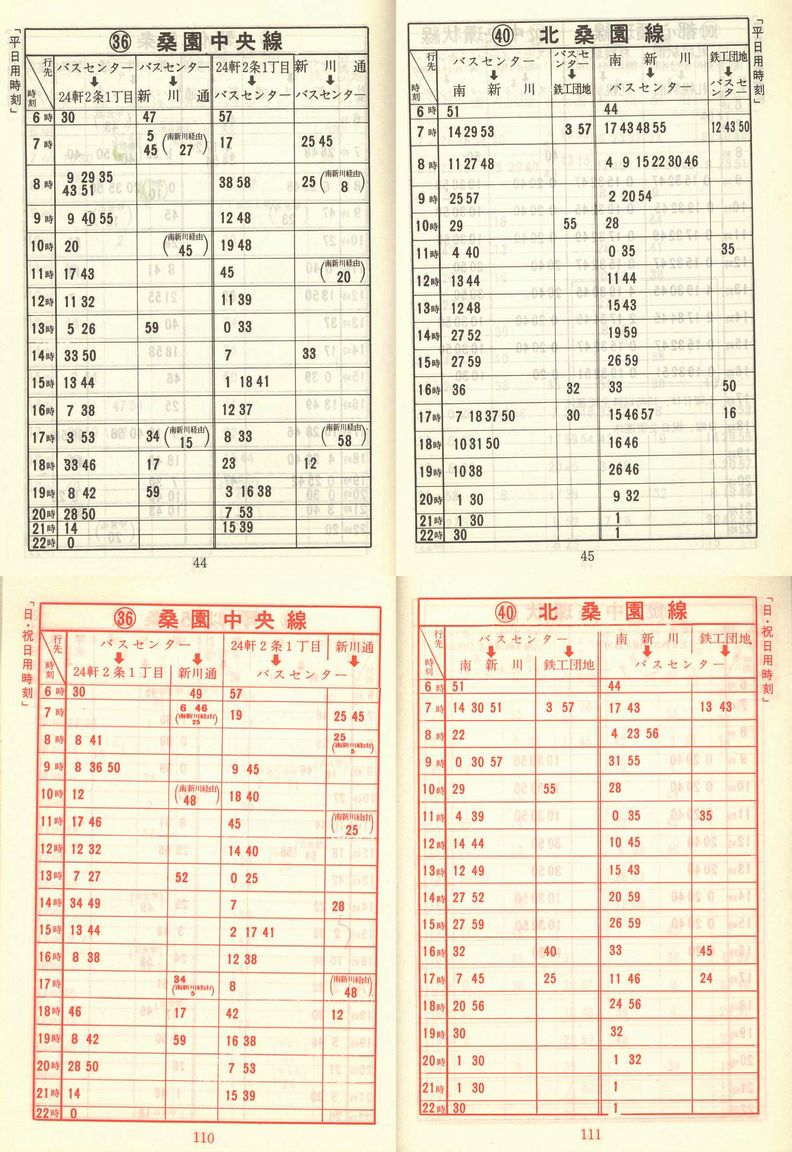 「平日用時刻」
㊱ 桑園中央線
行先 時刻 バスセンター ↓ 24軒2条1丁目 バスセンター ↓ 新川通 24軒2条1丁目 ↓ バスセンター 新川通 ↓ バスセンター
6時 30 47 57
7時 5 45 (南新川経由 27) 17 25 45
8時 9 29 35 43 51 38 58 25 (南新川経由 8)
9時 9 40 55 12 48
10時 20 (南新川経由 45) 19 48
11時 17 43 45 (南新川経由 20)
12時 11 32 11 39
13時 5 26 59 0 33
14時 33 50 7 33
15時 13 44 1 18 41
16時 7 38 12 37
17時 3 53 34 (南新川経由 15) 8 33 (南新川経由 58)
18時 33 46 17 23 12
19時 8 42 59 3 16 38
20時 28 50 7 53
21時 14 15 39
22時 0
44
㊵ 北桑園線
「平日用時刻」
行先 時刻 バスセンター ↓ 南新川 バスセンター ↓ 鉄工団地 南新川 ↓ バスセンター 鉄工団地 ↓ バスセンター
6時 51 44
7時 14 29 53 3 57 17 43 48 55 12 43 50
8時 11 27 48 4 9 15 22 30 46
9時 25 57 2 20 54
10時 29 55 28
11時 4 40 0 35 35
12時 13 44 11 44
13時 12 48 15 43
14時 27 52 19 59
15時 27 59 26 59
16時 36 32 33 50
17時 7 18 37 50 30 15 46 57 16
18時 10 31 50 16 46
19時 10 38 26 46
20時 1 30 9 32
21時 1 30 1
22時 30 1
45
「日・祝日用時刻」
㊱ 桑園中央線
行先 時刻 バスセンター ↓ 24軒2条1丁目 ↓ 新川通 24軒2条1丁目 ↓ 新川通 ↓ バスセンター
6時 30 49 57
7時 6 46 (南新川経由 25) 19 25 45
8時 8 41 25 (南新川経由 5)
9時 8 36 50 9 45
10時 12 (南新川経由 48) 18 40
11時 17 46 45 (南新川経由 25)
12時 12 32 14 40
13時 7 27 52 0 25
14時 34 49 7 28
15時 13 44 2 17 41
16時 8 38 12 38
17時 34 (南新川経由 5) 8 (南新川経由 48)
18時 46 17 42 12
19時 8 42 59 16 38
20時 28 50 7 53
21時 14 15 39
22時 0
110
㊵ 北桑園線
「日・祝日用時刻」
行先 時刻 バスセンター ↓ 南新川 ↓ 鉄工団地 南新川 ↓ 鉄工団地 ↓ バスセンター
6時 51 44
7時 14 30 51 3 57 17 43 13 43
8時 22 4 23 56
9時 0 30 57 31 55
10時 29 55 28
11時 4 39 0 35 35
12時 14 44 10 45
13時 12 49 15 43
14時 27 52 20 59
15時 27 59 26 59
16時 32 40 33 45
17時 7 45 25 11 46 24
18時 20 56 24 56
19時 30 32
20時 1 30 1 32
21時 1 30 1
22時 30 1
111